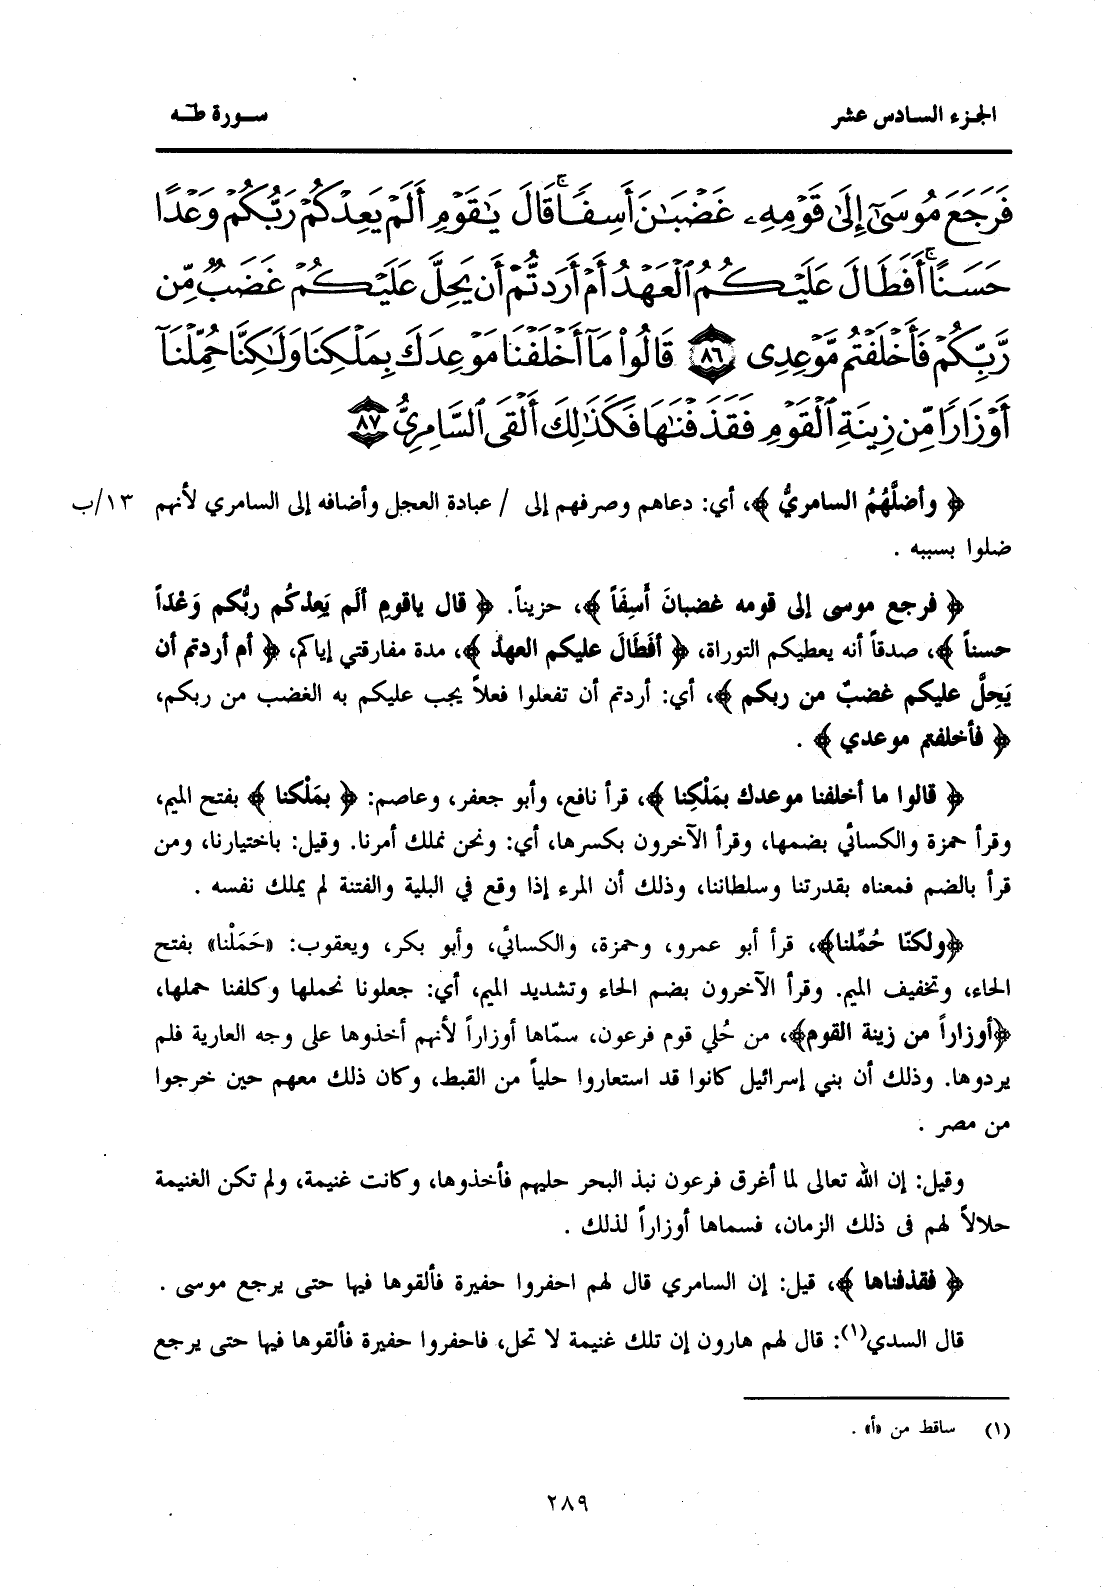 الجزء السادس عشر
سورة طه
فَرَجَعَ مُوسَىٰٓ إِلَىٰ قَوْمِهِۦ غَضْبَٰنَ أَسِفًا ۚ قَالَ يَٰقَوْمِ أَلَمْ يَعِدْكُمْ رَبُّكُمْ وَعْدًا
حَسَنًا ۚ أَفَطَالَ عَلَيْكُمُ ٱلْعَهْدُ أَمْ أَرَدتُّمْ أَن يَحِلَّ عَلَيْكُمْ غَضَبٌ مِّن
رَّبِّكُمْ فَأَخْلَفْتُم مَّوْعِدِى ٨٦ قَالُوا۟ مَآ أَخْلَفْنَا مَوْعِدَكَ بِمَلْكِنَا وَلَٰكِنَّا حُمِّلْنَآ
أَوْزَارًا مِّن زِينَةِ ٱلْقَوْمِ فَقَذَفْنَٰهَا فَكَذَٰلِكَ أَلْقَى ٱلسَّامِرِىُّ ٨٧
﴿ وأضلَّهُمُ السامريُّ ﴾، أي: دعاهم وصرفهم إلى / عبادة العجل وأضافه إلى السامري لأنهم ١٣/ب
ضلوا بسببه .
﴿ فرجع موسى إلى قومه غضبانَ أَسِفَاً ﴾، حزيناً. ﴿ قال ياقومِ ألَم يَعِدْكُم ربُّكم وَعْدَاً
حسناً ﴾، صدقاً أنه يعطيكم التوراة، ﴿ أفَطَالَ عليكم العهدُ ﴾، مدة مفارقتي إياكم، ﴿ أم أردتم أن
يَحِلَّ عليكم غضبٌ من ربكم ﴾، أي: أردتم أن تفعلوا فعلاً يجب عليكم به الغضب من ربكم،
﴿ فأخلفتم موعدي ﴾ .
﴿ قالوا ما أخلفنا موعدك بمَلْكِنا ﴾، قرأ نافع، وأبو جعفر، وعاصم: ﴿ بمَلْكنا ﴾ بفتح الميم،
وقرأ حمزة والكسائي بضمها، وقرأ الآخرون بكسرها، أي: ونحن نملك أمرنا. وقيل: باختيارنا، ومن
قرأ بالضم فمعناه بقدرتنا وسلطاننا، وذلك أن المرء إذا وقع في البلية والفتنة لم يملك نفسه .
﴿ولكنّا حُمِّلنا﴾، قرأ أبو عمرو، وحمزة، والكسائي، وأبو بكر، ويعقوب: «حَمَلْنا» بفتح
الحاء، وتخفيف الميم. وقرأ الآخرون بضم الحاء وتشديد الميم، أي: جعلونا نحملها وكلفنا حملها،
﴿أوزاراً من زينة القوم﴾، من حُلي قوم فرعون، سمّاها أوزاراً لأنهم أخذوها على وجه العارية فلم
يردوها. وذلك أن بني إسرائيل كانوا قد استعاروا حلياً من القبط، وكان ذلك معهم حين خرجوا
من مصر .
وقيل: إن الله تعالى لما أغرق فرعون نبذ البحر حليهم فأخذوها، وكانت غنيمة، ولم تكن الغنيمة
حلالاً لهم في ذلك الزمان، فسماها أوزاراً لذلك .
﴿ فقذفناها ﴾، قيل: إن السامري قال لهم احفروا حفيرة فألقوها فيها حتى يرجع موسى .
قال السدي(١): قال لهم هارون إن تلك غنيمة لا تحل، فاحفروا حفيرة فألقوها فيها حتى يرجع
(١) ساقط من «أ» .
٢٨٩